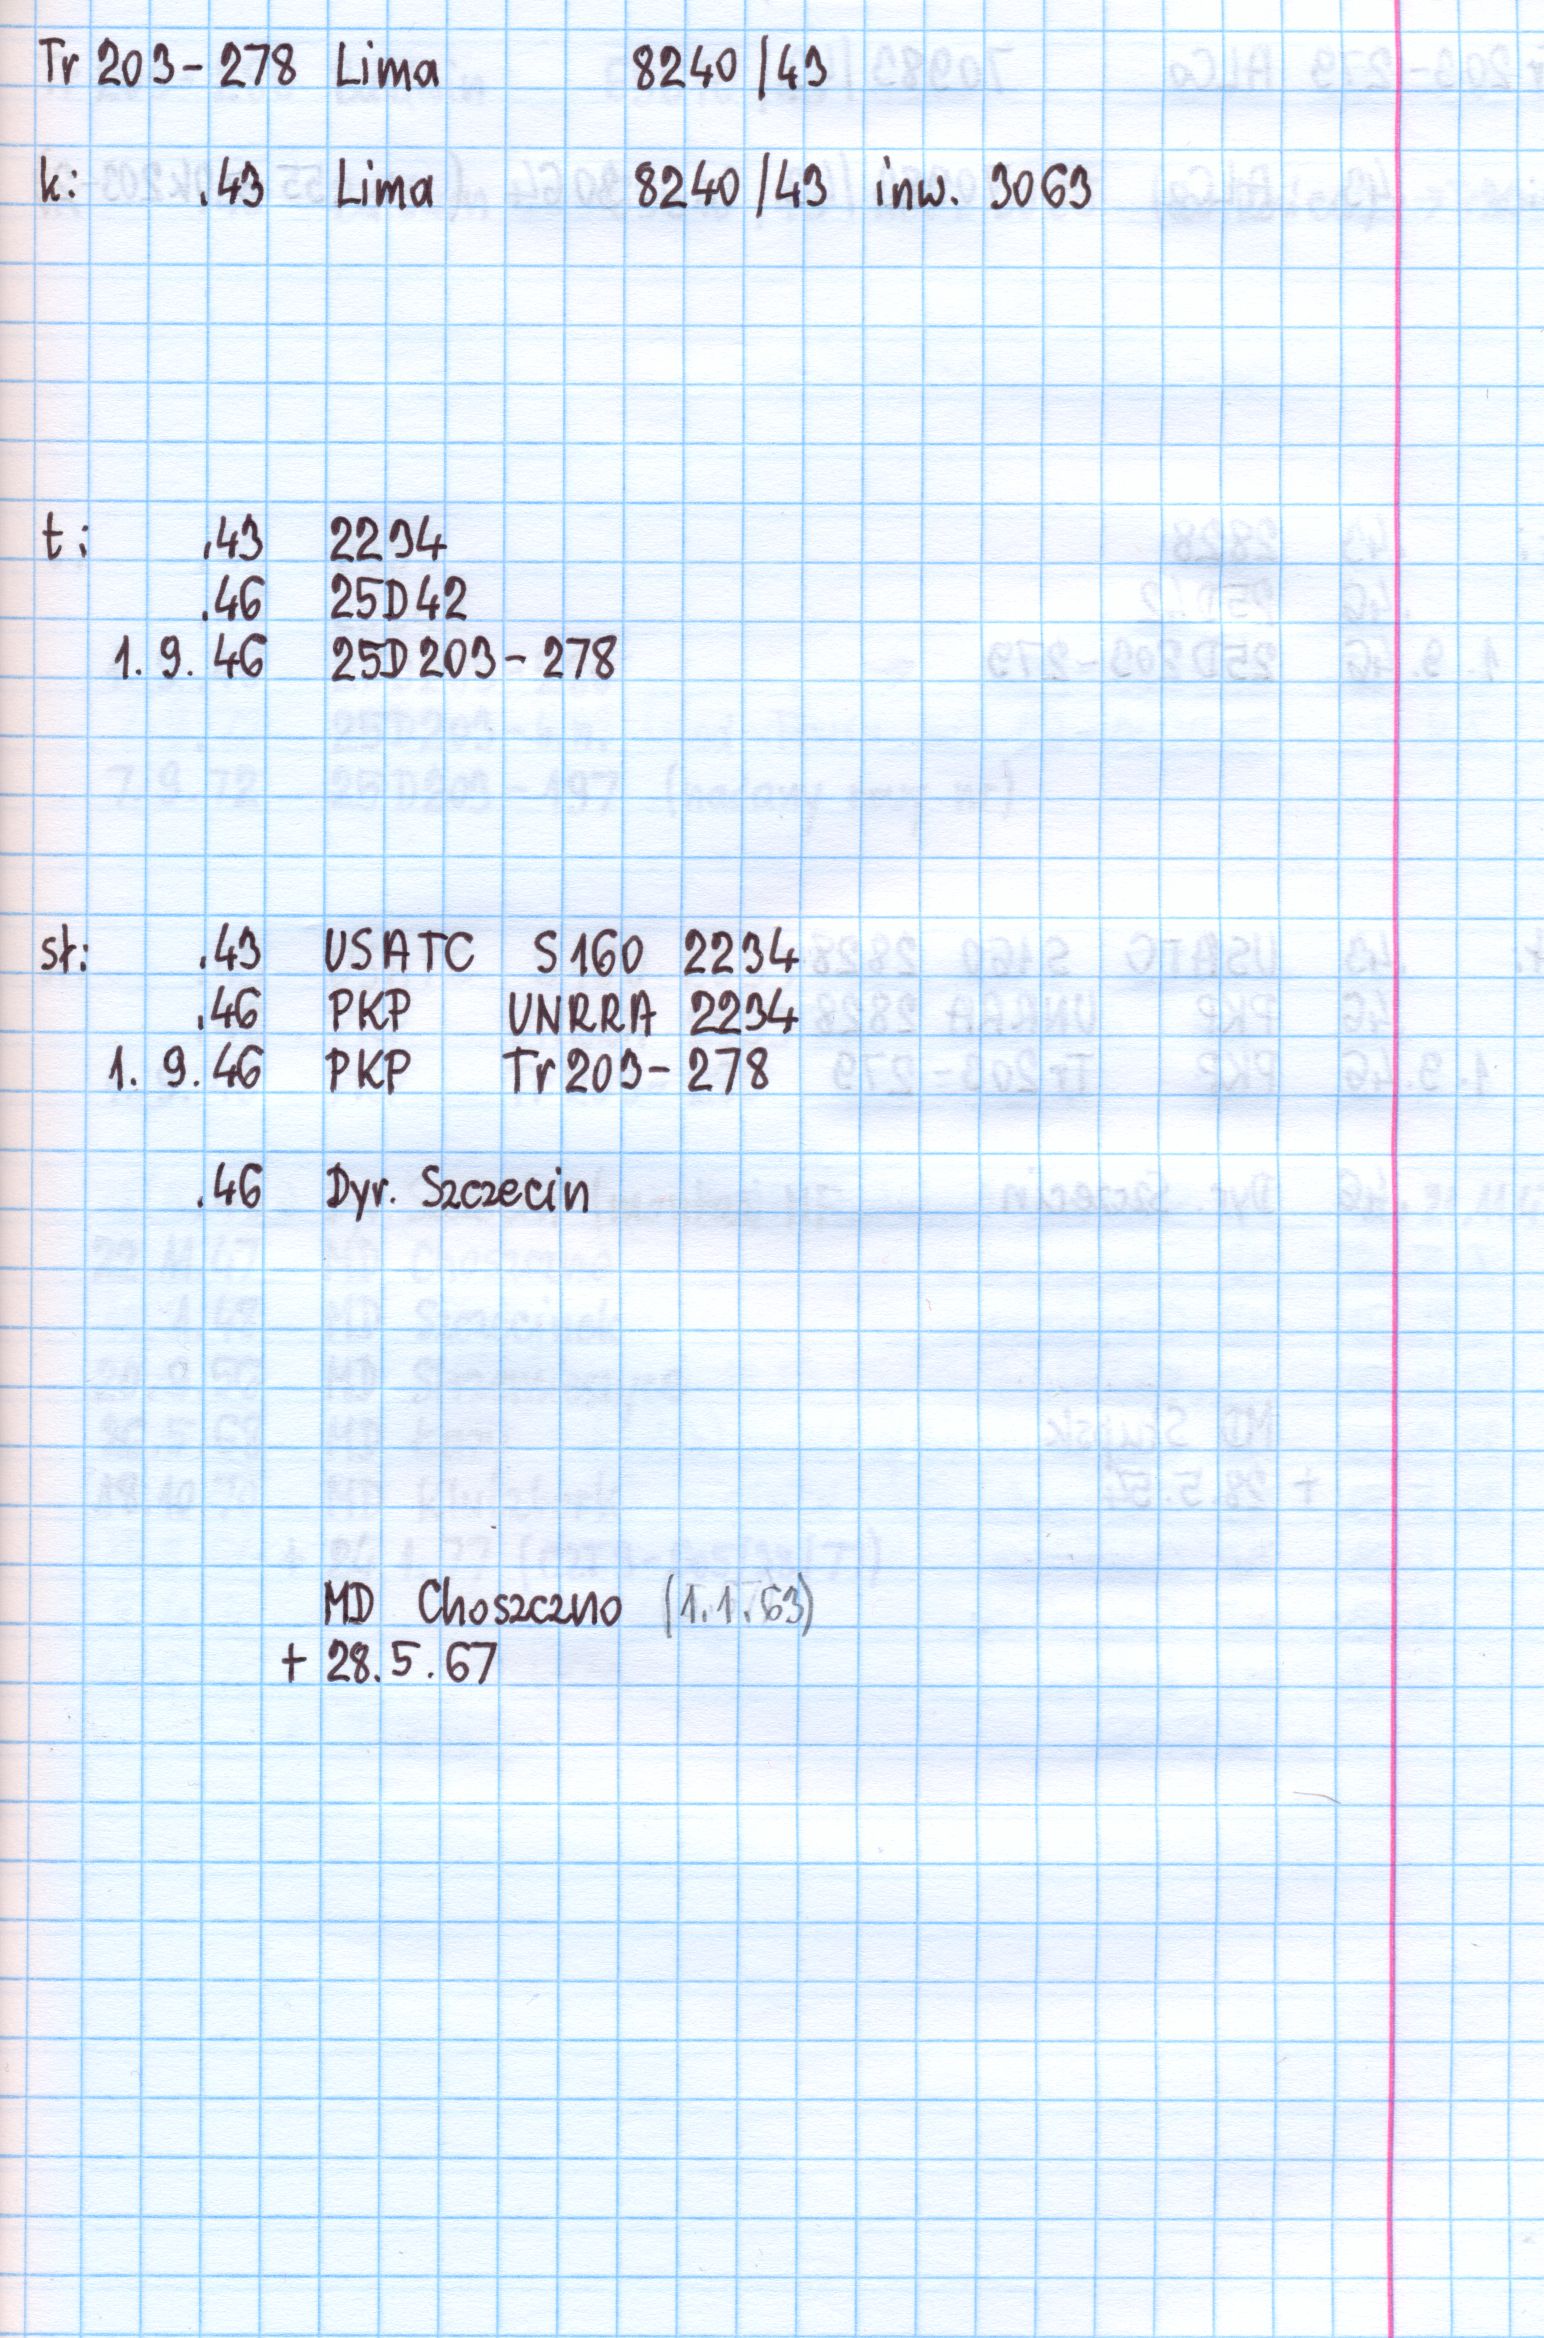 Tr 203-278 Lima 8240/43
k: .43 Lima 8240/43 inw. 3063
t: .43 2234
.46 25D42
1.9.46 25D203-278
sł: .43 USATC S160 2234
.46 PKP UNRRA 2234
1.9.46 PKP Tr203-278
.46 Dyr. Szczecin
MD Choszczno (1.1.63)
+ 28.5.67